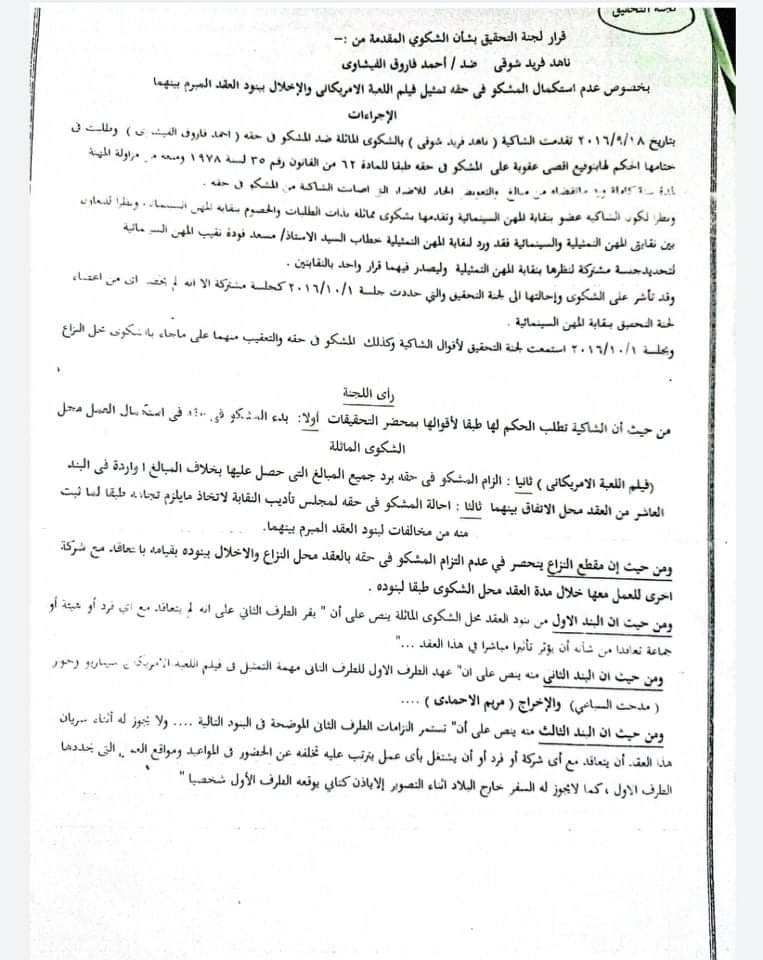 لجنة التحقيق
قرار لجنة التحقيق بشأن الشكوي المقدمة من :–
ناهد فريد شوقى ضد / أحمد فاروق الفيشاوى
بخصوص عدم استكمال المشكو فى حقه تمثيل فيلم اللعبة الامريكانى والإخلال ببنود العقد المبرم بينهما
الإجراءات
بتاريخ ٢٠١٦/٩/١٨ تقدمت الشاكية ( ناهد فريد شوقى ) بالشكوى الماثلة ضد المشكو فى حقه ( احمد فاروق الفيشاوى ) وطلبت فى
ختامها الحكم لها بتوقيع اقصى عقوبة على المشكو فى حقه طبقا للمادة ٦٢ من القانون رقم ٣٥ لسنة ١٩٧٨ ومنعه من مزاولة المهنة
لمدة سنة كاملة ورد ماتقضاه من مبالغ والتعويض الجابر للاضرار التى اصابت الشاكية من المشكو فى حقه .
ونظرا لكون الشاكيه عضو بنقابة المهن السينمائية وتقدمها بشكوى مماثلة بذات الطلبات والخصوم بنقابة المهن السينمائية ونظرا للتعاون
بين نقابتى المهن التمثيلية والسينمائية فقد ورد لنقابة المهن التمثيلية خطاب السيد الاستاذ/ مسعد فودة نقيب المهن السينمائية
لتحديد جلسة مشتركة لنظرها بنقابة المهن التمثيلية وليصدر فيهما قرار واحد بالنقابتين .
وقد تأشر على الشكوى وإحالتها الى لجنة التحقيق والتي حددت جلسة ٢٠١٦/١٠/١ كجلسة مشتركة الا انه لم يحضر اى من اعضاء
لجنة التحقيق بنقابة المهن السينمائية .
وبجلسة ٢٠١٦/١٠/١ استمعت لجنة التحقيق لأقوال الشاكية وكذلك المشكو فى حقه والتعقيب منهما على ماجاء بالشكوى محل النزاع
.
رأى اللجنة
من حيث أن الشاكية تطلب الحكم لها طبقا لأقوالها بمحضر التحقيقات أولا: بدء المشكو فى حقه فى استكمال العمل محل
الشكوى الماثلة
(فيلم اللعبة الامريكانى ) ثانيا : الزام المشكو فى حقه برد جميع المبالغ التى حصل عليها بخلاف المبالغ الواردة فى البند
العاشر من العقد محل الاتفاق بينهما ثالثا : احالة المشكو فى حقه لمجلس تأديب النقابة لاتخاذ مايلزم تجاهه طبقا لما ثبت
منه من مخالفات لبنود العقد المبرم بينهما.
ومن حيث إن مقطع النزاع ينحصر في عدم التزام المشكو فى حقه بالعقد محل النزاع والاخلال ببنوده بقيامه بالتعاقد مع شركة
اخرى للعمل معها خلال مدة العقد محل الشكوى طبقا لبنوده .
ومن حيث ان البند الاول من بنود العقد محل الشكوى الماثلة ينص على أن " يقر الطرف الثاني على انه لم يتعاقد مع اي فرد أو هيئة أو
جماعة تعاقدا من شأنه أن يؤثر تأثيرا مباشرا في هذا العقد ..."
ومن حيث ان البند الثانى منه ينص على ان" عهد الطرف الاول للطرف الثانى مهمة التمثيل فى فيلم اللعبة الامريكانى سيناريو وحوار
( مدحت السباعي) والإخراج ( مريم الاحمدى ) ....
ومن حيث ان البند الثالث منه ينص على أن" تستمر التزامات الطرف الثانى الموضحة فى البنود التالية .... ولا يجوز له أثناء سريان
هذا العقد أن يتعاقد مع أى شركة أو فرد أو أن يشتغل بأى عمل يترتب عليه تخلفه عن الحضور فى المواعيد ومواقع العمل التى يحددها
الطرف الاول ، كما لايجوز له السفر خارج البلاد اثناء التصوير إلا باذن كتابي يوقعه الطرف الأول شخصيا "